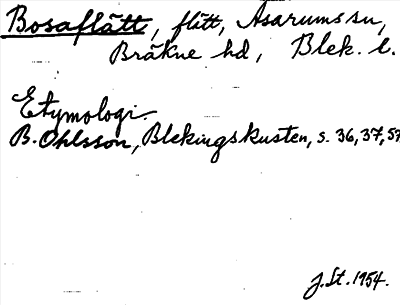 Bosaflätt, flätt, Asarums sn,
Bräkne hd, Blek. l.
Etymologi.
B. Ohlsson, Blekingskusten, s. 36, 37, 57
J. St. 1954.